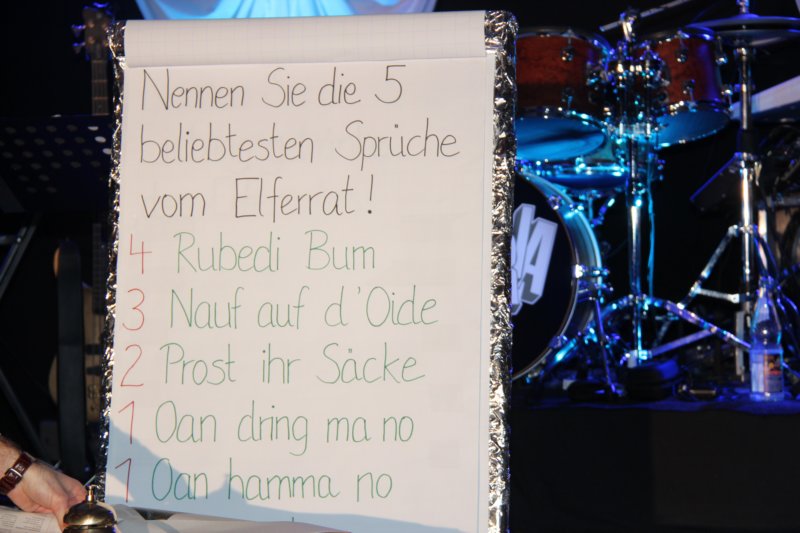 Nennen Sie die 5
beliebtesten Sprüche
vom Elferrat!
4 Rubedi Bum
3 Nauf auf d'Oide
2 Prost ihr Säcke
1 Oan dring ma no
1 Oan hamma no